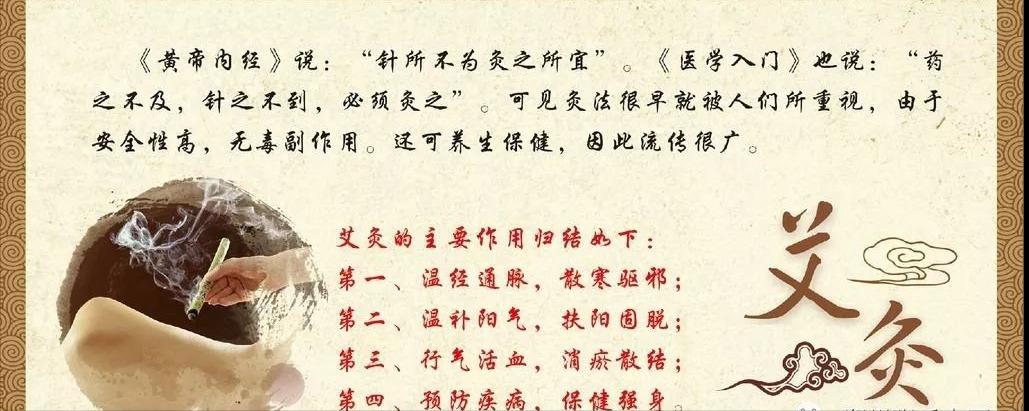 《黄帝内经》说：“针所不为灸之所宜”。《医学入门》也说：“药
之不及，针之不到，必须灸之”。可见灸法很早就被人们所重视，由于
安全性高，无毒副作用。还可养生保健，因此流传很广。
艾灸的主要作用归结如下：
第一、温经通脉，散寒驱邪；
第二、温补阳气，扶阳固脱；
第三、行气活血，消瘀散结；
第四、预防疾病，保健强身。
艾灸